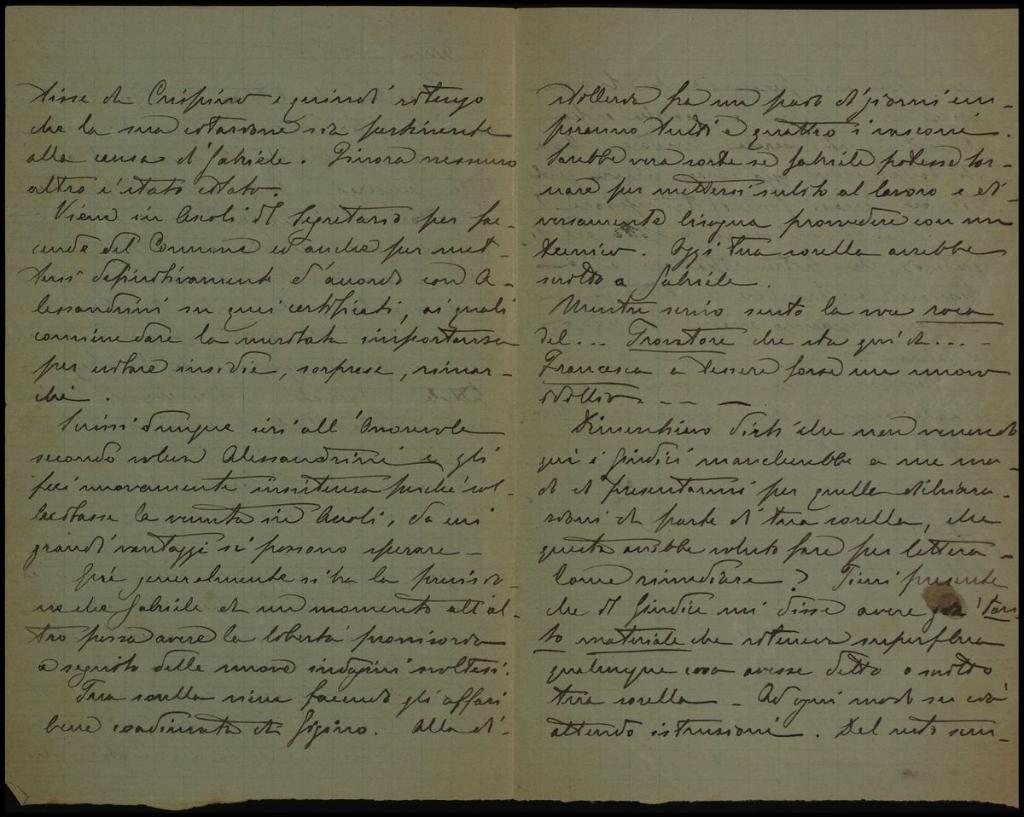 tisse di Crispino e quindi ritengo
che la sua citazione sia pertinente
alla causa di Gabriele. Finora nessuno
altro è stato citato.
Viene in Ascoli il Segretario per fac-
cende del Comune ed anche per met-
tersi definitivamente d'accordo con A-
lessandrini su quei certificati, ai quali
conviene dare la meritata importanza
per evitare insidie, sorprese, rimar-
chi.
Scrissi dunque ieri all'Onorevole
secondo voleva Alessandrini e gli
feci nuovamente insistenza perché sol-
lecitasse la venuta in Ascoli, da cui
grandi vantaggi si possono sperare -
Qui generalmente si ha la previsio-
ne che Gabriele da un momento all'al-
tro possa avere la libertà provvisoria
a seguito delle nuove indagini svoltesi.
Tua sorella viene facendo gli affari
bene coadiuvata da Gigino. Alla di-
stilleria fra un paio di giorni em-
piranno tutti e quattro i vasconi.
Sarebbe vera sorte se Gabriele potesse tor-
nare per mettersi subito al lavoro e di-
versamente bisogna provvedere con un
tecnico. Oggi tua sorella avrebbe
scritto a Gabriele.
Mentre scrivo sento la voce roca
del... Trovatore che sta qui da....
Francesca a tessere forse un nuovo
idillio - - -
Dimenticavo dirti che non venendo
qui i Giudici mancherebbe a me mo-
do di presentarmi per quelle dichiara-
zioni da parte di tua sorella, che
questa avrebbe voluto fare per lettera -
Come rimediare? Tieni presente
che il Giudice mi disse avere già tan-
to materiale che riteneva superflua
qualunque cosa avesse detto o scritto
tua sorella - Ad ogni modo su ciò
attendo istruzioni. Del resto sem-